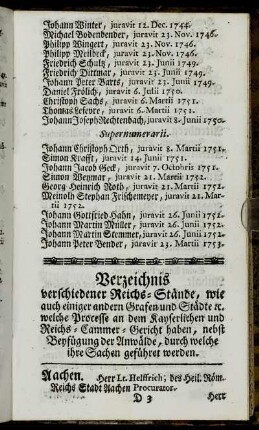 Johann Winter, juravit 12. Dec. 1744.
Michael Bodenbender, juravit 23. Nov. 1746.
Philipp Wingert, juravit 23. Nov. 1746.
Philipp Meilbick, juravit 23. Nov. 1746.
Friedrich Schultz, juravit 23. Junii 1749.
Friedrich Dittmar, juravit 23. Junii 1749.
Johann Peter Barts, juravit 23. Junii 1749.
Daniel Frölich, juravit 6. Julii 1750.
Christoph Sachs, juravit 6. Martii 1751.
Thomas Lefevre, juravit 6. Martii 1751.
Johann Joseph Rechtenbach, juravit 8. Junii 1750.
Supernumerarii.
Johann Christoph Orth, juravit 8. Martii 1751.
Simon Krafft, juravit 14. Junii 1751.
Johann Jacob Geck, juravit 7. Octobris 1751.
Simon Weymar, juravit 21. Martii 1752.
Georg Heinrich Roth, juravit 21. Martii 1752.
Meinolff Stephan Frischemeyer, juravit 21. Mar-
tii 1752.
Johann Gottfried Hahn, juravit 26. Junii 1752.
Johann Martin Müller, juravit 26. Junii 1752.
Johann Martin Stemmer, juravit 26. Junii 1752.
Johann Peter Bender, juravit 23. Martii 1753.
Verzeichnis
verschiedener Reichs-Stände, wie
auch einiger andern Grafen und Städte ꝛc.
welche Processe an dem Kayserlichen und
Reichs-Cammer-Gericht haben, nebst
Beyfügung der Anwälde, durch welche
ihre Sachen geführet werden.
Aachen. Herr Lt. Helffrich, des Heil. Röm.
Reichs Stadt Aachen Procurator.
D 3 Herr